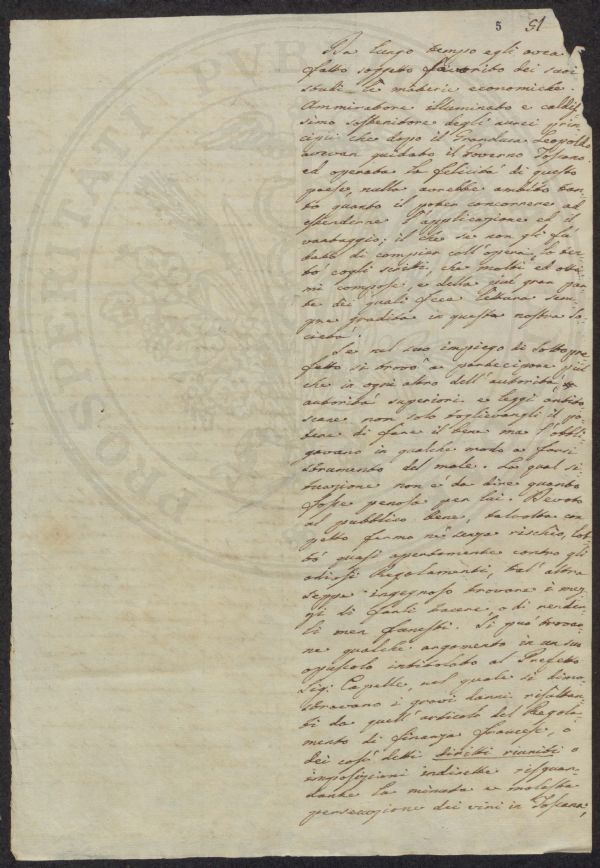 5 51
Da lungo tempo egli avea
fatto soggetto favorito dei suoi
studi le materie economiche.
Ammiratore illuminato e caldis
simo sostenitore degli aurei prin
cipii che dopo il Granduca Leopoldo
avevan guidato il Governo Toscano
ed operata la felicità di questo
paese, nulla avrebbe ambito tan
to quanto il poter concorrere ad
estenderne l'applicazione ed il
vantaggio; il che se non gli fù
dato di compier coll'opera, lo ten
tò cogli scritti, che molti ed otti
mi compose, e della più gran par
te dei quali fece lettura sem
pre gradita in questa nostra So
cietà.
Se nel suo impiego di Sottopre
fetto si trovò a partecipare più
che in ogni altro dell'autorità,
autorità superiori e leggi
non solo toglievangli il po
tere di fare il bene ma l'obbli
gavano in qualche modo a farsi
strumento del male. La qual si
tuazione non è da dire quanto
fosse penosa per lui. Devoto
al pubblico bene, talvolta con
petto fermo nè senza rischio, lot
tò quasi apertamente contro gli
odiosi Regolamenti, tal'altra
seppe ingegnoso trovare i mez
zi di farli tacere, o di render
li men funesti. Si può trovar
ne qualche argomento in un suo
opuscolo intitolato al Prefetto
Sig. Capelle, nel quale si dimo
stravano i gravi danni resultan
ti da quell'articolo del Regola
mento di finanza francese, o
dei così detti diritti riuniti o
imposizioni indirette risguar
dante la minuta e molesta
persecuzione dei vini in Toscana,
PROSPERITATI PVB